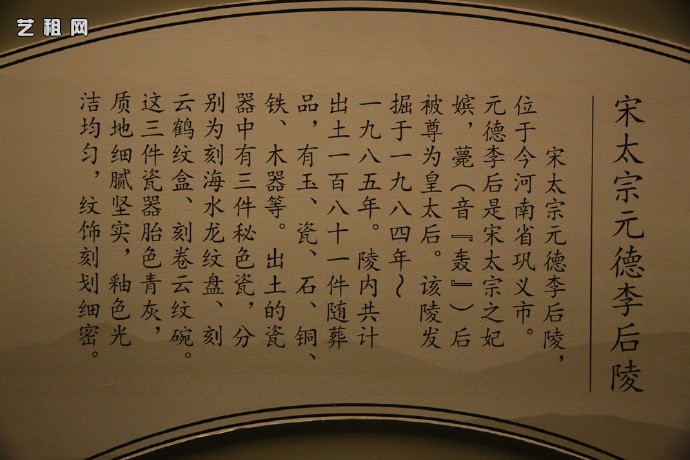 艺租网
宋太宗元德李后陵
宋太宗元德李后陵，
位于今河南省巩义市。
元德李后是宋太宗之妃
嫔，薨（音『轰』）后
被尊为皇太后。该陵发
掘于一九八四年～
一九八五年。陵内共计
出土一百八十一件随葬
品，有玉、瓷、石、铜、
铁、木器等。出土的瓷
器中有三件秘色瓷，分
别为刻海水龙纹盘、刻
云鹤纹盒、刻卷云纹碗。
这三件瓷器胎色青灰，
质地细腻坚实，釉色光
洁均匀，纹饰刻划细密。